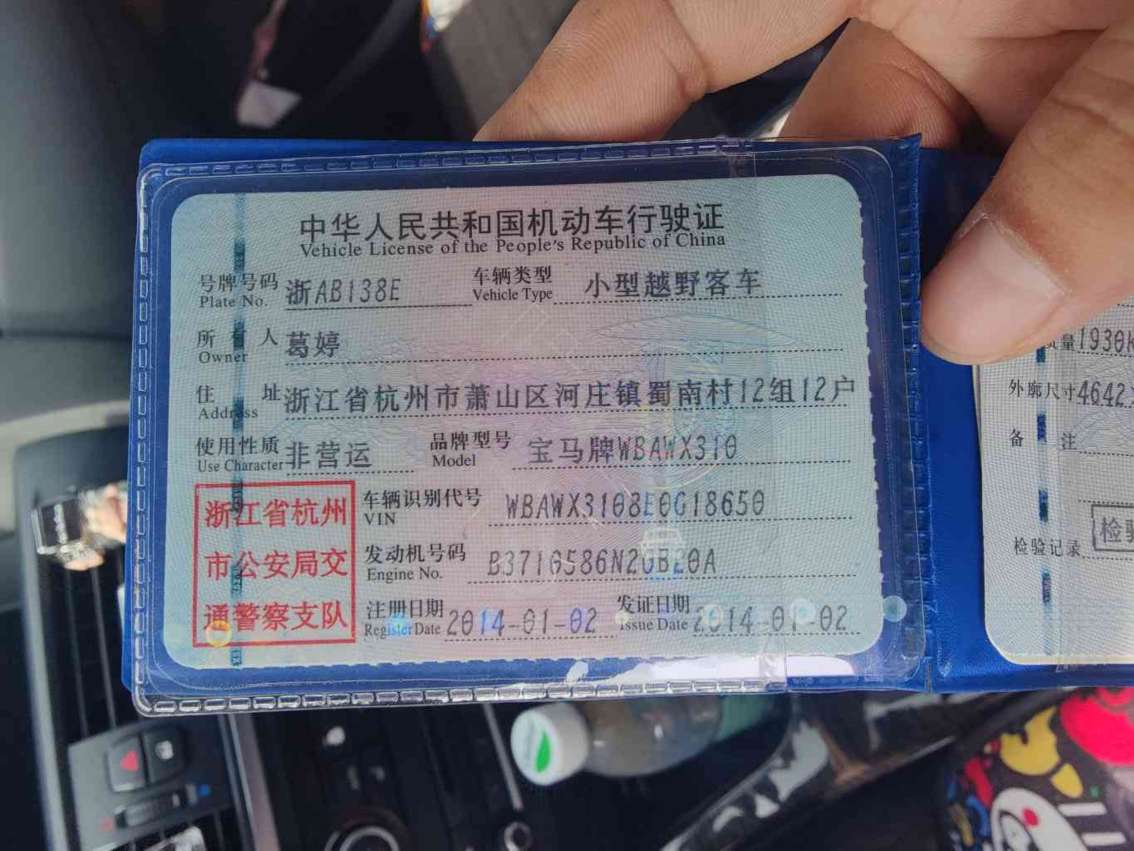 中华人民共和国机动车行驶证
Vehicle License of the People's Republic of China
号牌号码 浙AB138E 车辆类型 小型越野客车
Plate No. Vehicle Type
所有人 葛婷
Owner
住址 浙江省杭州市萧山区河庄镇蜀南村12组12户
Address
使用性质 非营运 品牌型号 宝马牌WBAWX310
Use Character Model
浙江省杭州
市公安局交
通警察支队
车辆识别代号 WBAWX3108E0G18650
VIN
发动机号码 B3710586N20B20A
Engine No.
注册日期 2014-01-02 发证日期 2014-01-02
Register Date Issue Date
质量 1930k
外廓尺寸 4642
备注
检验记录 检